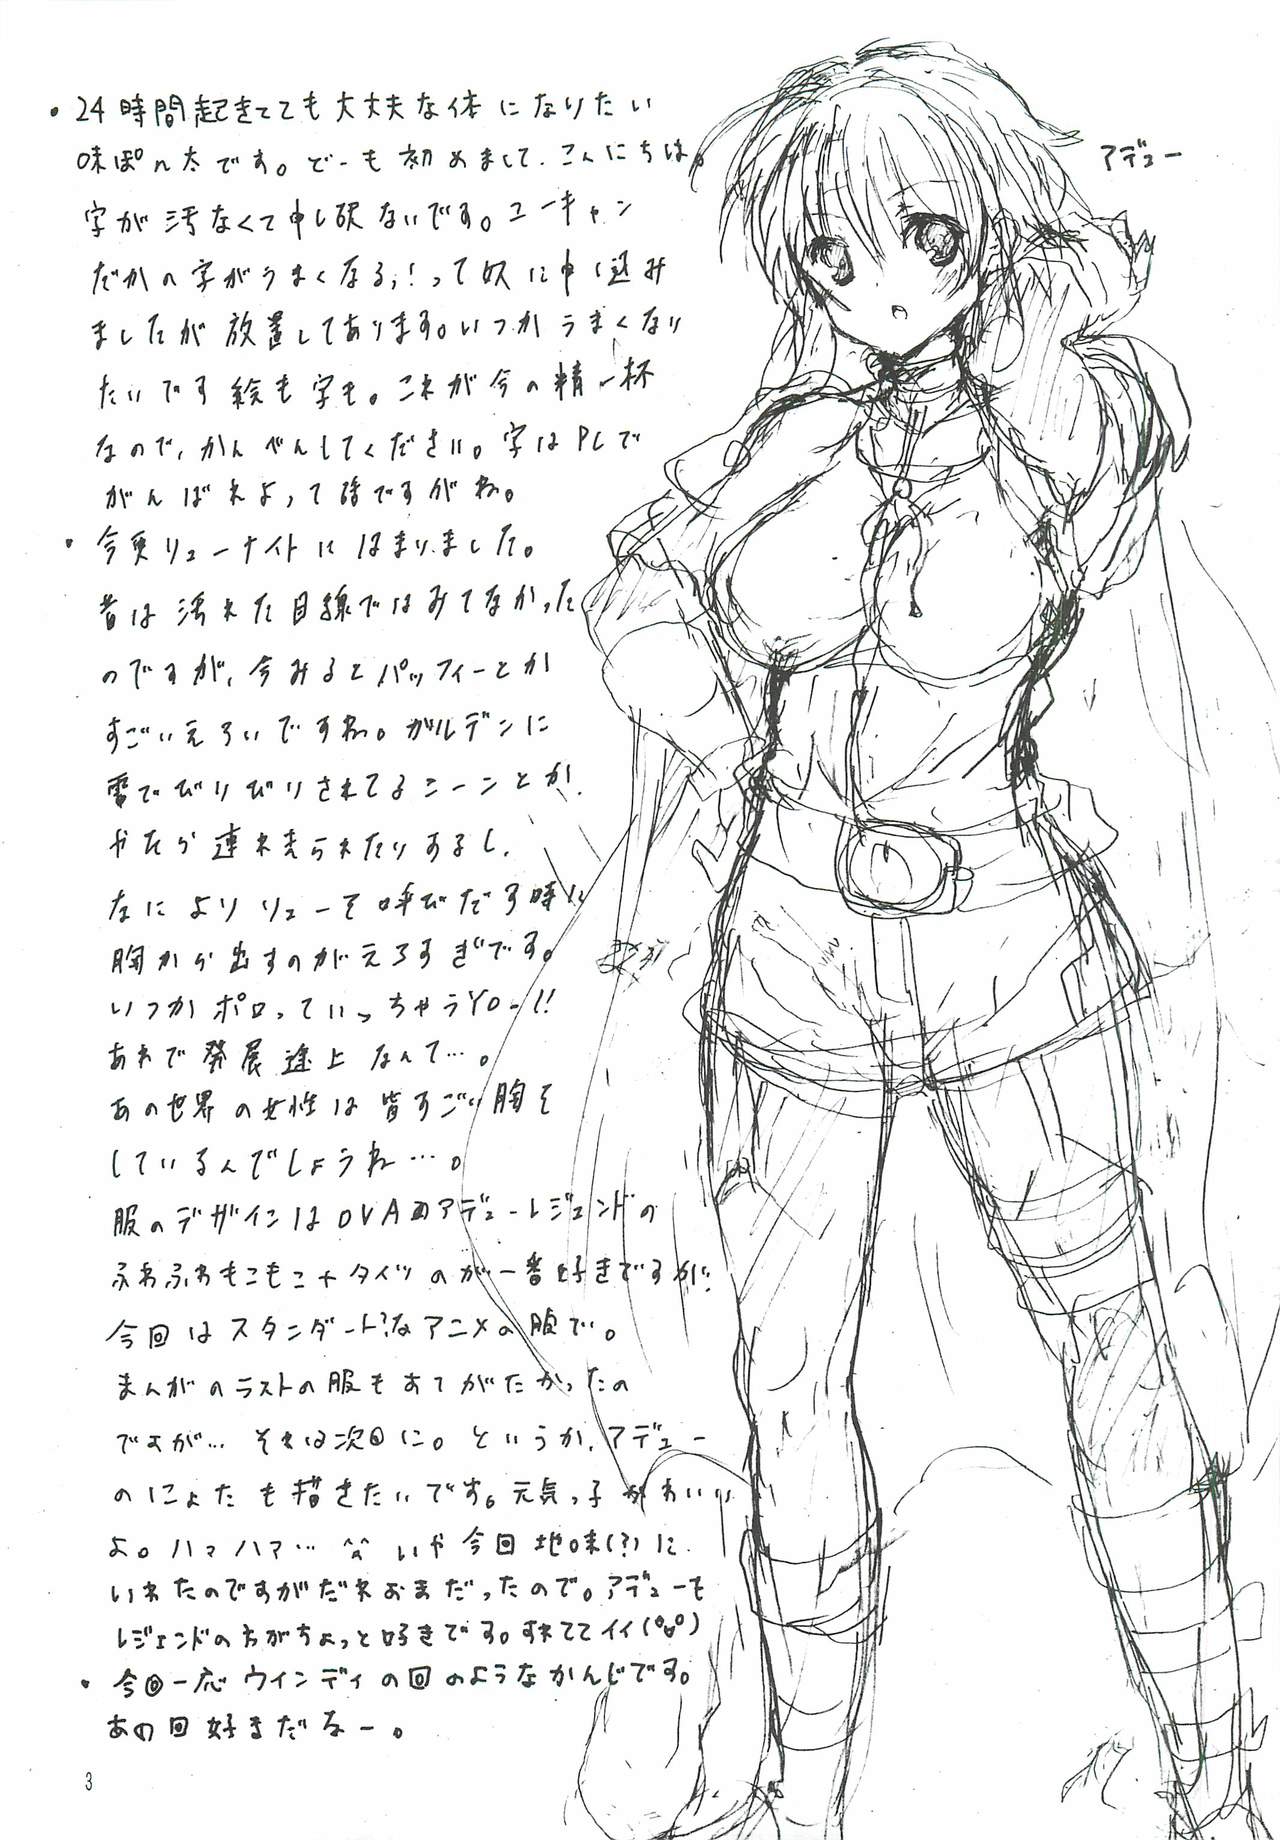 ・24時間起きてても大丈夫な体になりたい
味ぽん太です。どーも初めまして、こんにちは。
字が汚なくて申し訳ないです。ユーキャン
だかの字がうまくなる!って奴に申し込み
ましたが放置してあります。いつかうまくなり
たいです絵も字も。これが今の精一杯
なので、かんべんしてください。字はPCで
がんばれよって話ですがね。
・今更リューナイトにはまりました。
昔は汚れた目線ではみてなかった
のですが、今みるとパッフィーとか
すごいえろいですね。ガルデンに
雷でびりびりされてるシーンとか、
やたら連れ去られたりするし、
なによりリューを呼びだす時に
胸から出すのがえろすぎです。
いつかポロっていっちゃうYO-!!
あれで発展途上なんて…。
あの世界の女性は皆すごい胸を
しているんでしょうね…。
服のデザインはOVAのアデューレジェンドの
ふわふわもこもこ+タイツのが一番好きですが、
今回はスタンダードなアニメの服で。
まんがのラストの服もすてがたかったの
ですが…それは次回に。というか、アデュー
のにょたも描きたいです。元気っ子かわいい
よ。ハァハァ… いや今回地味(?)に
いれたのですがだれおまだったので。アデューも
レジェンドの方がちょっと好きです。すれててイイ(°∀°)
・今回一応ウインディの回のようなかんじです。
あの回好きだなー。
アデュー
3